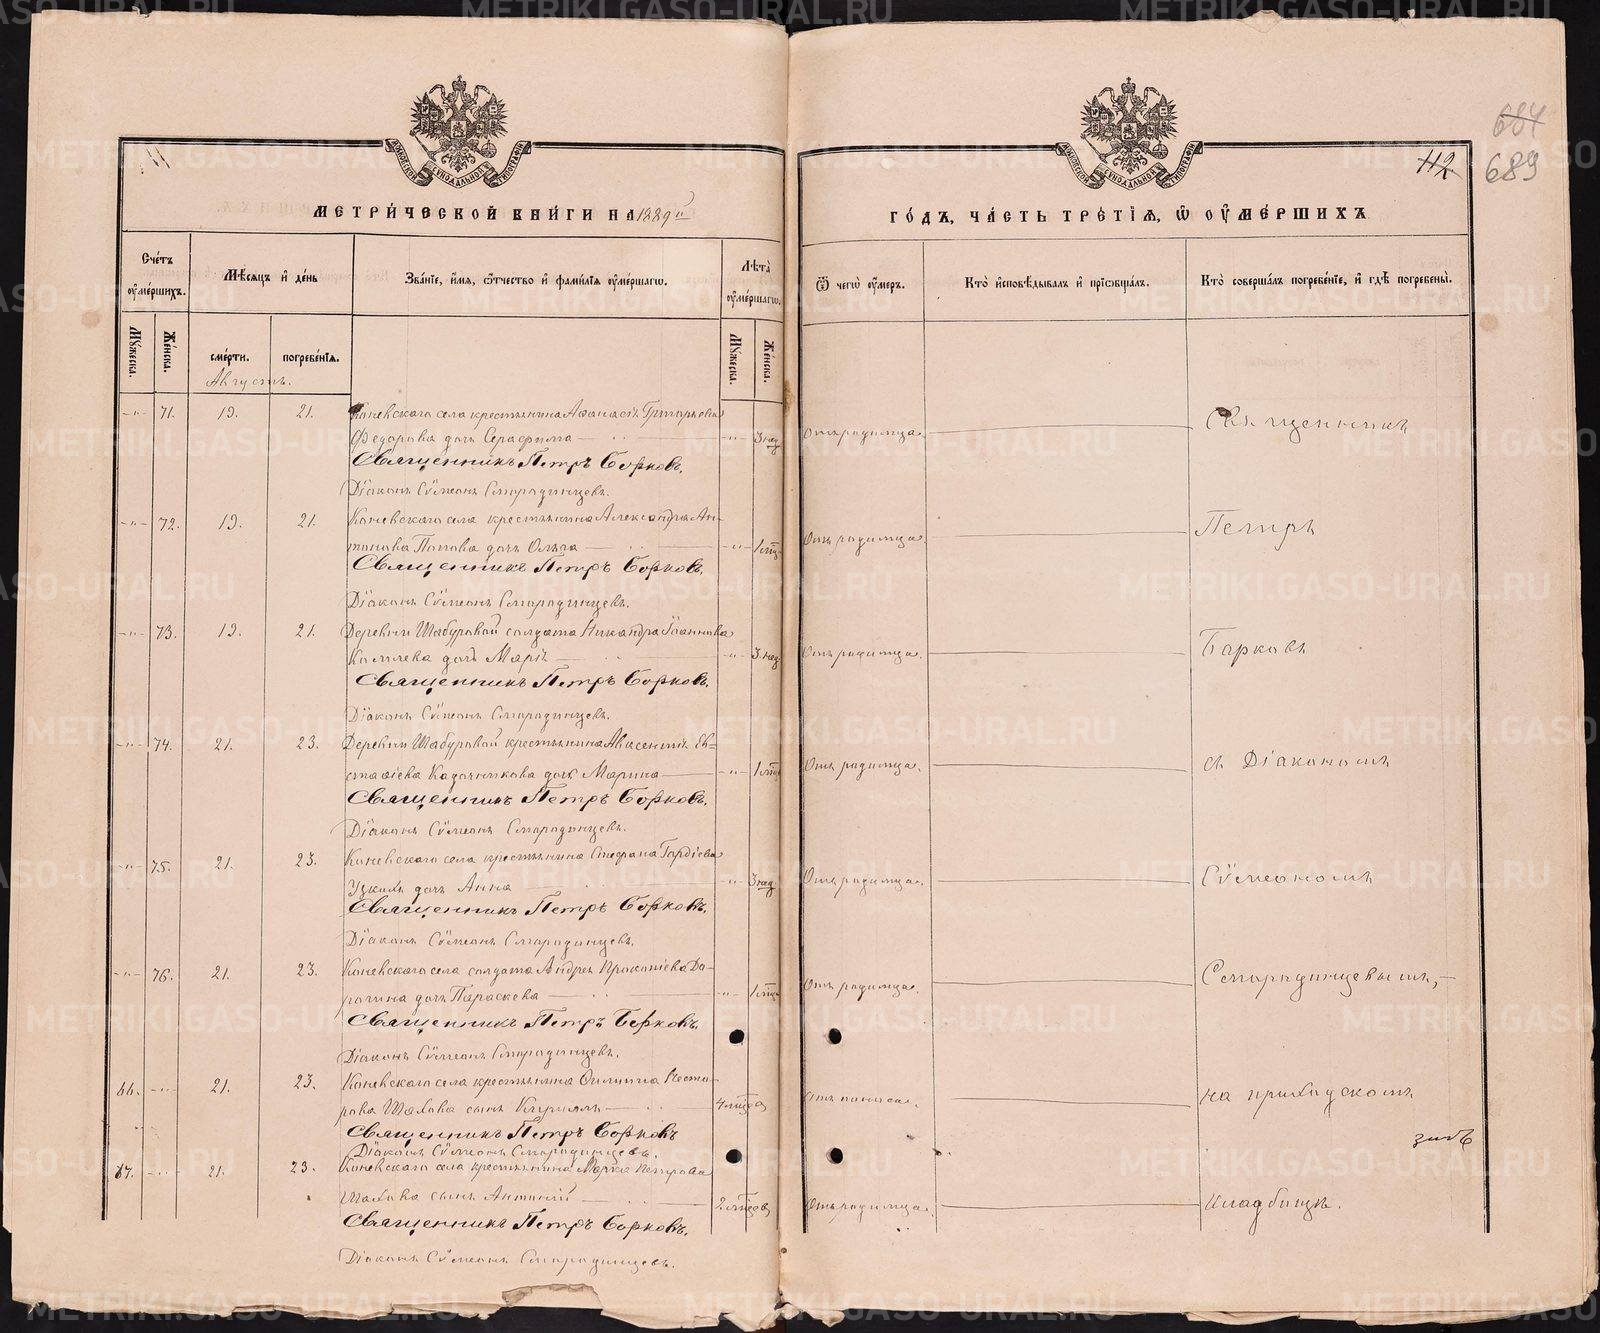 МЕТРИЧЕСКОЙ КНИГИ НА 1889й ГОДЪ, ЧАСТЬ ТРЕТІЯ, Ѡ ОУМЕРШИХЪ
112
684
689
Счетъ оумершихъ.
Мѣсяцъ и день
Званіе, имя, отчество и фамилія оумершагѡ.
Лѣта оумершагѡ.
Ѿ чегѡ оумеръ.
Кто исповѣдывалъ и пріѡбщалъ.
Кто совершалъ погребеніе, и гдѣ погребены.
Мꙋжеска.
Женска.
смерти.
погребенія.
Мꙋжеска.
Женска.
Августъ.
-"- 71. 19. 21. Коневскаго села крестьянина Аѳанасія Григорьева
Федорова дочь Серафима -"- 3 нед Отъ родимца. Священникъ
Священникъ Петръ Борковъ.
Діаконъ Сѵмеонъ Смородинцевъ.
-"- 72. 19. 21. Коневскаго села крестьянина Александра Ан-
тонова Попова дочь Ольга -"- 1 мца Отъ родимца. Петръ
Священникъ Петръ Борковъ.
Діаконъ Сѵмеонъ Смородинцевъ.
-"- 73. 19. 21. Деревни Шабуровой солдата Никандра Іоаннова
дочь Марія -"- 3 нед Отъ родимца. Борковъ
Священникъ Петръ Борковъ.
Діаконъ Сѵмеонъ Смородинцевъ.
-"- 74. 21. 23. Деревни Шабуровой крестьянина Авксентія Ев-
стафіева Кадочникова дочь Марина -"- 1 мца Отъ родимца. съ Діакономъ
Священникъ Петръ Борковъ.
Діаконъ Сѵмеонъ Смородинцевъ.
-"- 75. 21. 23. Коневскаго села крестьянина Стефана Гордіева
дочь Анна -"- 3 нед Отъ родимца. Сѵмеономъ
Священникъ Петръ Борковъ.
Діаконъ Сѵмеонъ Смородинцевъ.
-"- 76. 21. 23. Коневскаго села солдата Андрея Прокопіева До-
рогина дочь Параскева -"- 1 мца Отъ родимца. Смородинцевымъ,
Священникъ Петръ Борковъ.
Діаконъ Сѵмеонъ Смородинцевъ.
66. -"- 21. 23. Коневскаго села крестьянина Филиппа Несто-
рова Шахова сынъ Кириллъ 4 мцев Отъ поноса. на приходскомъ
Священникъ Петръ Борковъ
Діаконъ Сѵмеонъ Смородинцевъ.
67. -"- 21. 23. Коневскаго села крестьянина Марка Петрова
Шахова сынъ Антоній 2 мцев Отъ родимца. кладбищѣ.
Священникъ Петръ Борковъ.
Діаконъ Сѵмеонъ Смородинцевъ.
METRIKI.GASO-URAL.RU